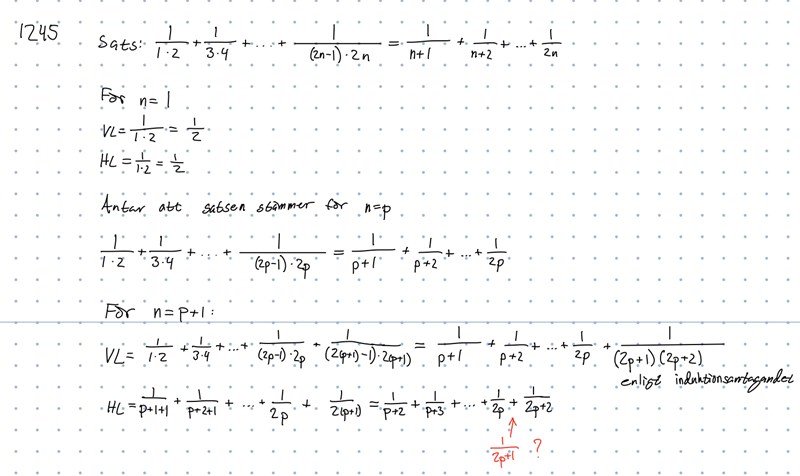 1245
Sats: 1/(1·2) + 1/(3·4) + ... + 1/((2n-1)·2n) = 1/(n+1) + 1/(n+2) + ... + 1/(2n)
För n=1
VL = 1/(1·2) = 1/2
HL = 1/(1·2) = 1/2
Antar att satsen stämmer för n=p
1/(1·2) + 1/(3·4) + ... + 1/((2p-1)·2p) = 1/(p+1) + 1/(p+2) + ... + 1/(2p)
För n=p+1:
VL = 1/(1·2) + 1/(3·4) + ... + 1/((2p-1)·2p) + 1/((2(p+1)-1)·2(p+1)) = 1/(p+1) + 1/(p+2) + ... + 1/(2p) + 1/((2p+1)(2p+2))
enligt induktionsantagandet
HL = 1/(p+1+1) + 1/(p+2+1) + ... + 1/(2p) + 1/(2(p+1)) = 1/(p+2) + 1/(p+3) + ... + 1/(2p) + 1/(2p+2)
↑
1/(2p+1) ?